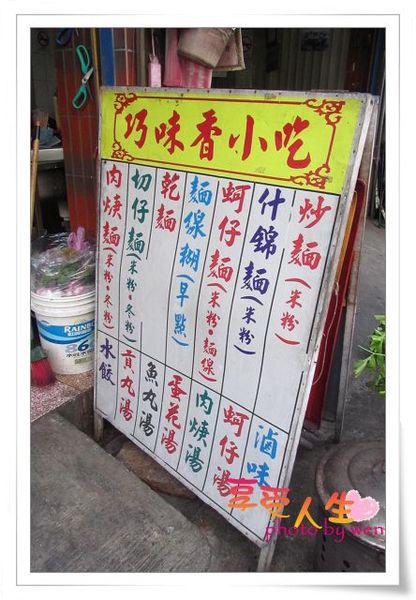 巧味香小吃
炒麵(米粉)
什錦麵(米粉)
蚵仔麵(米粉·麵線)
麵線糊(早點)
乾麵
切仔麵(米粉·冬粉)
肉焿麵(米粉·冬粉)
滷味
蚵仔湯
肉焿湯
蛋花湯
魚丸湯
貢丸湯
水餃
RAINBOW
享受人生
photo by wen